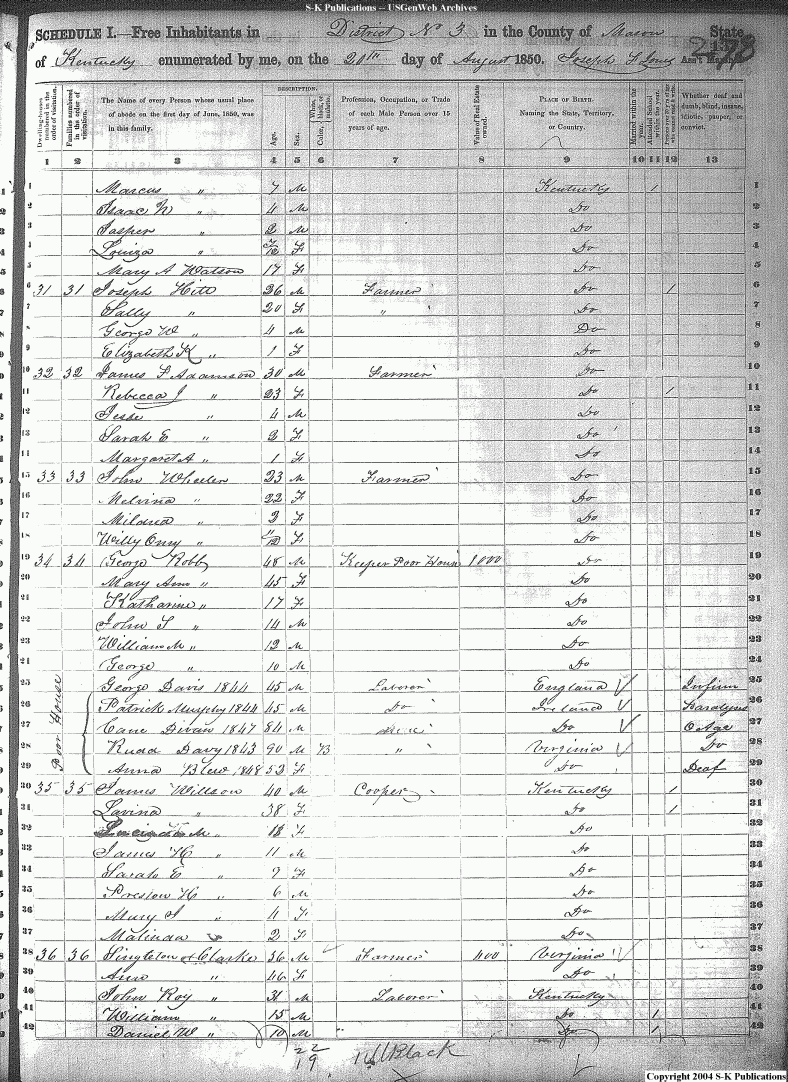 S-K Publications -- USGenWeb Archives
SCHEDULE I.—Free Inhabitants in District No 3. in the County of Mason State
of Kentucky enumerated by me, on the 20th day of August 1850. Joseph Ass't Marshal
DESCRIPTION.
Dwelling-houses numbered in the order of visitation. Families numbered in the order of visitation. The Name of every Person whose usual place of abode on the first day of June, 1850, was in this family. Age. Sex. Color, White, black, or mulatto. Profession, Occupation, or Trade of each Male Person over 15 years of age. Value of Real Estate owned. PLACE OF BIRTH. Naming the State, Territory, or Country. Married within the year. Attended School within the year. Whether deaf and dumb, blind, insane, idiotic, pauper, or convict.
1 2 3 4 5 6 7 8 9 10 11 12 13
1 Marcus " 7 M Kentucky 1 1
2 Isaac N " 4 M Do 2
3 Jasper " 2 M Do 3
4 Louiza " F Do 4
5 Mary A Watson 17 F Do 5
6 31 31 Joseph Hitt 26 M Farmer Do 1 6
7 Sally " 20 F " Do 7
8 George W " 4 M Do 8
9 Elizabeth K " 1 F Do 9
10 32 32 James F Adamson 30 M Farmer Do 10
11 Rebecca J " 23 F Do 1 11
12 Jesse " 4 M Do 12
13 Sarah E " 2 F Do 13
14 Margaret A " 1 F Do 14
15 33 33 John Wheeler 23 M Farmer Do 15
16 Melvina " 22 F Do 16
17 Mildred " 2 F Do 17
18 Willy " 11/12 F Do 18
19 34 34 George Robb 48 M Keeper Poor House 1000 Do 19
20 Mary Ann " 45 F Do 20
21 Katharine " 17 F Do 21
22 John S " 14 M Do 22
23 William M " 12 M Do 23
24 George " 10 M Do 24
Poor House
25 George Davis 1844 45 M Laborer England 25 Infirm
26 Patrick Murphy 1844 45 M Do Ireland 26 Paralysis
27 Cane 1847 84 M Do 27 O Age
28 Rudd Davy 1843 90 M B " Virginia 28 Do
29 Anna Blew 1848 53 F Do 29 Deaf
30 35 35 James Willson 40 M Cooper Kentucky 1 30
31 Lavina " 38 F Do 1 31
32 M " 13 F Do 32
33 James H " 11 M Do 33
34 Sarah E " 9 F Do 34
35 Preston H " 6 M Do 35
36 Mary J " 4 F Do 36
37 Malinda " 2 F Do 37
38 36 36 Singleton Clarke 56 M Farmer 400 Virginia 38
39 Ann " 46 F Do 39
40 John Roy " 21 M Laborer Kentucky 40
41 William " 15 M Do 1 41
42 Daniel W " 10 M Do 1 42
22
19 Black
Copyright 2004 S-K Publications